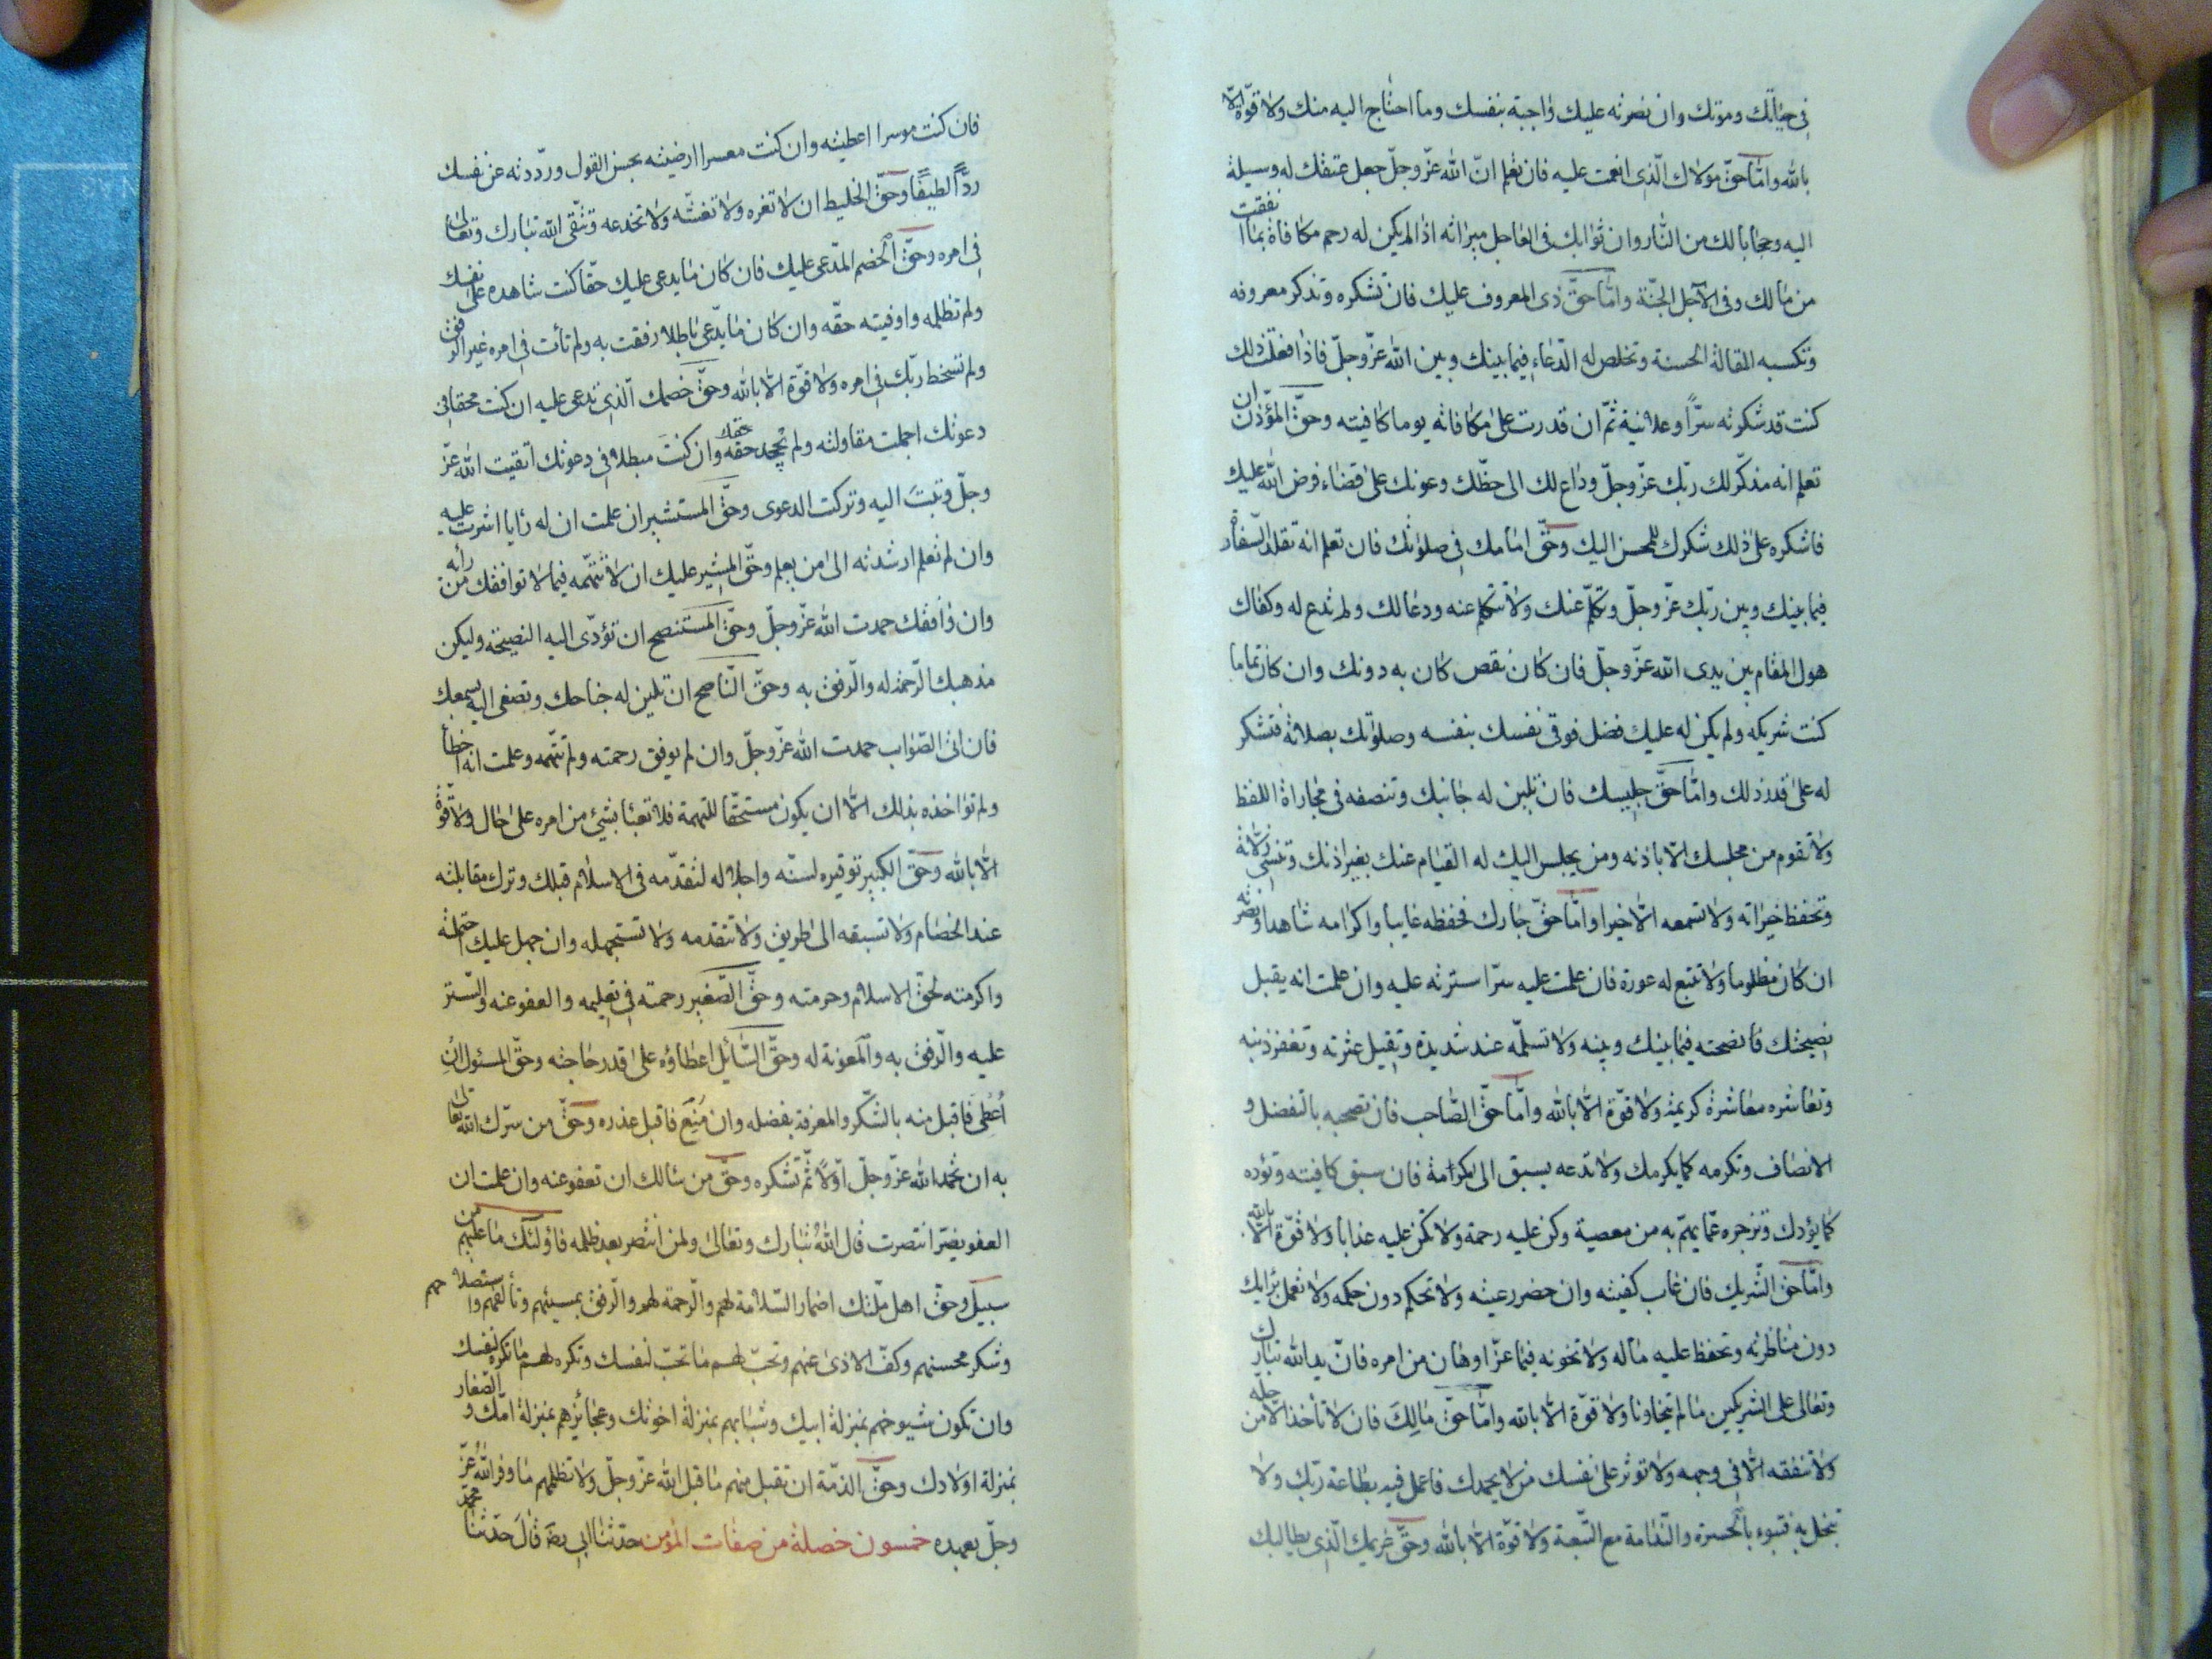 في حياتك وموتك وان نصرته عليك واجبة بنفسك وما احتاج اليه منك ولا قوّة الّا
بالله وامّا حقّ مولاك الّذي انعمت عليه فان تعلم انّ الله عزّ وجلّ جعل عتقك له وسيلة
اليه وحجابا لك من النّار وان ثوابك في العاجل ميراثه اذا لم يكن له رحم مكافاة بما انفقت
من مالك وفي الآجل الجنّة وامّا حقّ ذي المعروف عليك فان تشكره وتذكر معروفه
وتكسبه المقالة الحسنة وتخلص له الدّعاء فيما بينك وبين الله عزّ وجلّ فاذا فعلت ذلك
كنت قد شكرته سرّاً وعلانية ثمّ ان قدرت على مكافاته يوما كافيته وحقّ المؤذّن ان
تعلم انه مذكّر لك ربّك عزّ وجلّ وداع لك الى حظّك وعونك على قضاء فرض الله عليك
فاشكره على ذلك شكرك للمحسن اليك وحقّ امامك في صلوتك فان تعلم انه تقلد السّفارة
فيما بينك وبين ربّك عزّ وجلّ وتكلّم عنك ولا تتكلم عنه ودعا لك ولم تدع له وكفاك
هول المقام بين يدي الله عزّ وجلّ فان كان نقص كان به دونك وان كان تماما
كنت شريكه ولم يكن له عليك فضل فوقى نفسك بنفسه وصلوتك بصلاته فتشكر
له على قدر ذلك وامّا حقّ جليسك فان تلين له جانبك وتنصفه في مجاراة اللفظ
ولا تقوم من مجلسك الّا باذنه ومن يجلس اليك له القيام عنك بغير اذنك وتنسى زلّاته
وتحفظ خيراته ولا تسمعه الّا خيرا وامّا حقّ جارك فحفظه غايبا واكرامه شاهدا ونصرته
ان كان مظلوما ولا تتبع له عورة فان علمت عليه سرّا سترته عليه وان علمت انه يقبل
نصيحتك فانصحته فيما بينك وبينه ولا تسلّمه عند شديدة وتقيل عثرته وتغفر ذنبه
وتعاشره معاشرة كريمة ولا قوّة الّا بالله وامّا حقّ الصّاحب فان تصحبه بالتفضل و
الانصاف وتكرمه كما يكرمك ولا تدعه يسبق الى مكرامة فان سبق كافيته وتوده
كما يودك وتزجره عمّا يهمّ به من معصية وكن عليه رحمة ولا تكن عليه عذابا ولا قوّة الّا بالله
وامّا حقّ الشّريك فان غاب كفيته وان حضر رعيته ولا تحكم دون حكمه ولا تعمل برايك
دون مناظرته وتحفظ عليه ماله ولا تخونه فيما عزّ او هان من امره فانّ يد الله تبارك
وتعالى على الشريكين ما لم يتخاونا ولا قوّة الّا بالله وامّا حقّ مالك فان لا تأخذ الّا من حله
ولا تنفقه الّا في وجهه ولا توثر على نفسك من لا يحمدك فاعمل فيه بطاعة ربّك ولا
تبخل به فتبوء بالحسرة والنّدامة مع التّبعة ولا قوّة الّا بالله وحقّ غريمك الّذي يطالبك
فان كنت موسرا اعطيته وان كنت معسرا ارضيته بحسن القول ورددته عن نفسك
ردّاً لطيفاً وحقّ الخليط ان لا تغره ولا تغشّه ولا تخدعه وتتّقى الله تبارك وتعالى
في امره وحقّ الخصم المدّعى عليك فان كان ما يدعى عليك حقّا كنت شاهده على نفسك
ولم تظلمه واوفيته حقّه وان كان ما يدّعى باطلا رفقت به ولم تأت في امره غير الرّفق
ولم تسخط ربّك في امره ولا قوّة الّا بالله وحقّ خصمك الّذي تدعى عليه ان كنت محقا في
دعوتك اجملت مقاولته ولم تجحد حقه حقك وان كنت مبطلا في دعوتك اتقيت الله عزّ
وجلّ وتبت اليه وتركت الدعوى وحقّ المستشير ان علمت ان له رايا اشرت عليه
وان لم تعلم ارشدته الى من يعلم وحقّ المشير عليك ان لا تتّهمه فيما لا توافقك من رأيه
وان وافقك حمدت الله عزّ وجلّ وحقّ المستنصح ان تؤدّى اليه النصيحة وليكن
مذهبك الرّحمة له والرّفق به وحقّ النّاصح ان تلين له جناحك وتصغى اليه بسمعك
فان اتى الصّواب حمدت الله عزّ وجلّ وان لم يوفق رحمته ولم تتّهمه وعلمت انه اخطأ
ولم تواخذه بذلك الّا ان يكون مستحقّا للتهمة فلا تعبأ بشيئ من امره على حال ولا قوّة
الّا بالله وحقّ الكبير توقيره لسنّه واجلاله لتقدّمه في الاسلام قبلك وترك مقابلته
عند الخصام ولا تسبقه الى طريق ولا تتقدمه ولا تستجهله وان جهل عليك احتملته
واكرمته لحقّ الاسلام وحرمته وحقّ الصّغير رحمته في تعليمه والعفو عنه والسّتر
عليه والرّفق به والمعونة له وحقّ السّائل اعطاؤه على قدر حاجته وحقّ المسئول ان
أعطى فاقبل منه بالشّكر والمعرفة بفضله وان منع فاقبل عذره وحقّ من سرّك الله تعالى
به ان تحمد الله عزّ وجلّ اوّلاً ثمّ تشكره وحقّ من سائك ان تعفو عنه وان علمت ان
العفو يضرّ انتصرت قال الله تبارك وتعالى ولمن انتصر بعد ظلمه فاولئك ما عليهم من
سبيل وحقّ اهل ملّتك اضمار السّلامة لهم والرّحمة لهم والرّفق بمسيئهم وتألفهم واستصلاحهم
وشكر محسنهم وكفّ الاذى عنهم وتحبّ لهم ما تحبّ لنفسك وتكره لهم ما تكره لنفسك
وان تكون شيوخهم بمنزلة ابيك وشبابهم بمنزلة اخوتك وعجائزهم بمنزلة امّك و الصّغار
بمنزلة اولادك وحقّ الذمّة ان تقبل منهم ما قبل الله عزّ وجلّ ولا تظلمهم ما وفوا لله عزّ
وجلّ بعهده خمسون خصلة من صفات المؤمن حدّثنا ابي رضه قال حدّثنا محمّد